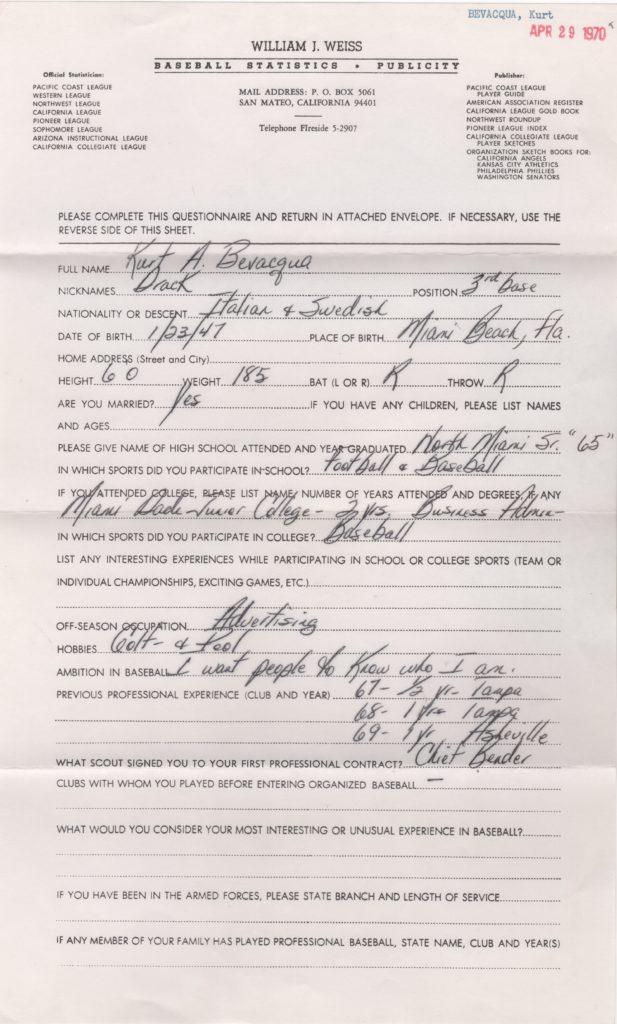 BEVACQUA, Kurt
APR 29 1970
WILLIAM J. WEISS
BASEBALL STATISTICS • PUBLICITY
Official Statistician:
PACIFIC COAST LEAGUE
WESTERN LEAGUE
NORTHWEST LEAGUE
CALIFORNIA LEAGUE
PIONEER LEAGUE
SOPHOMORE LEAGUE
ARIZONA INSTRUCTIONAL LEAGUE
CALIFORNIA COLLEGIATE LEAGUE
MAIL ADDRESS: P. O. BOX 5061
SAN MATEO, CALIFORNIA 94401
Telephone FIreside 5-2907
Publisher:
PACIFIC COAST LEAGUE
PLAYER GUIDE
AMERICAN ASSOCIATION REGISTER
CALIFORNIA LEAGUE GOLD BOOK
NORTHWEST ROUNDUP
PIONEER LEAGUE INDEX
CALIFORNIA COLLEGIATE LEAGUE
PLAYER SKETCHES
ORGANIZATION SKETCH BOOKS FOR:
CALIFORNIA ANGELS
KANSAS CITY ATHLETICS
PHILADELPHIA PHILLIES
WASHINGTON SENATORS
PLEASE COMPLETE THIS QUESTIONNAIRE AND RETURN IN ATTACHED ENVELOPE. IF NECESSARY, USE THE
REVERSE SIDE OF THIS SHEET.
FULL NAME Kurt A. Bevacqua
NICKNAMES POSITION 3rd base
NATIONALITY OR DESCENT Italian & Swedish
DATE OF BIRTH 1/23/47 PLACE OF BIRTH Miami Beach, Fla.
HOME ADDRESS (Street and City)
HEIGHT 6 0 WEIGHT 185 BAT (L OR R) R THROW R
ARE YOU MARRIED? Yes IF YOU HAVE ANY CHILDREN, PLEASE LIST NAMES
AND AGES
PLEASE GIVE NAME OF HIGH SCHOOL ATTENDED AND YEAR GRADUATED North Miami Sr. "65"
IN WHICH SPORTS DID YOU PARTICIPATE IN SCHOOL? Football & Baseball
IF YOU ATTENDED COLLEGE, PLEASE LIST NAME, NUMBER OF YEARS ATTENDED AND DEGREES, IF ANY
Miami Dade Junior College - 2 yrs. Business Admin-
IN WHICH SPORTS DID YOU PARTICIPATE IN COLLEGE? Baseball
LIST ANY INTERESTING EXPERIENCES WHILE PARTICIPATING IN SCHOOL OR COLLEGE SPORTS (TEAM OR
INDIVIDUAL CHAMPIONSHIPS, EXCITING GAMES, ETC.)
OFF-SEASON OCCUPATION Advertising
HOBBIES Golf - & Pool
AMBITION IN BASEBALL I want people to know who I am.
PREVIOUS PROFESSIONAL EXPERIENCE (CLUB AND YEAR) 67 - 1/2 yr - Tampa
68 - 1 yrs Tampa
69 - 1 yr Asheville
WHAT SCOUT SIGNED YOU TO YOUR FIRST PROFESSIONAL CONTRACT? Chief Bender
CLUBS WITH WHOM YOU PLAYED BEFORE ENTERING ORGANIZED BASEBALL —
WHAT WOULD YOU CONSIDER YOUR MOST INTERESTING OR UNUSUAL EXPERIENCE IN BASEBALL?
IF YOU HAVE BEEN IN THE ARMED FORCES, PLEASE STATE BRANCH AND LENGTH OF SERVICE
IF ANY MEMBER OF YOUR FAMILY HAS PLAYED PROFESSIONAL BASEBALL, STATE NAME, CLUB AND YEAR(S)